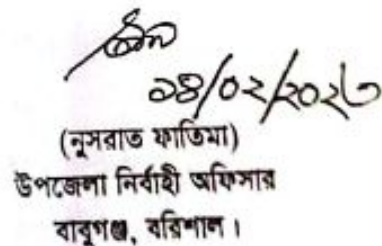 ১৪/০২/২০২৩
(নুসরাত ফাতিমা)
উপজেলা নির্বাহী অফিসার
বাবুগঞ্জ, বরিশাল।